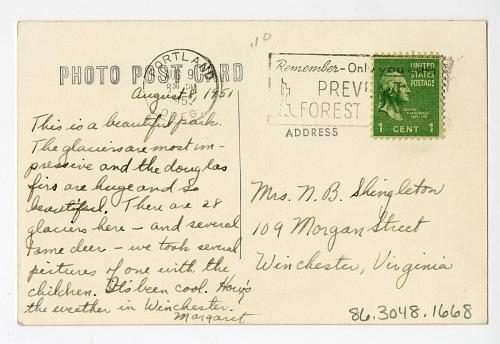 110
PHOTO POST CARD
PORTLAND
AUG 9
8 30 PM
1951
OREG.
Remember-Only you
PREVENT
FOREST
UNITED
STATES
POSTAGE
1 CENT 1
ADDRESS
August 8, 1951
This is a beautiful park.
The glaciers are most im-
pressive and the douglas
firs are huge and so
beautiful. There are 28
glaciers here - and several
tame deer - we took several
pictures of one with the
children. It's been cool. How's
the weather in Winchester.
Margaret
Mrs. N. B. Shingleton
109 Morgan Street
Winchester, Virginia
86.3048.1668